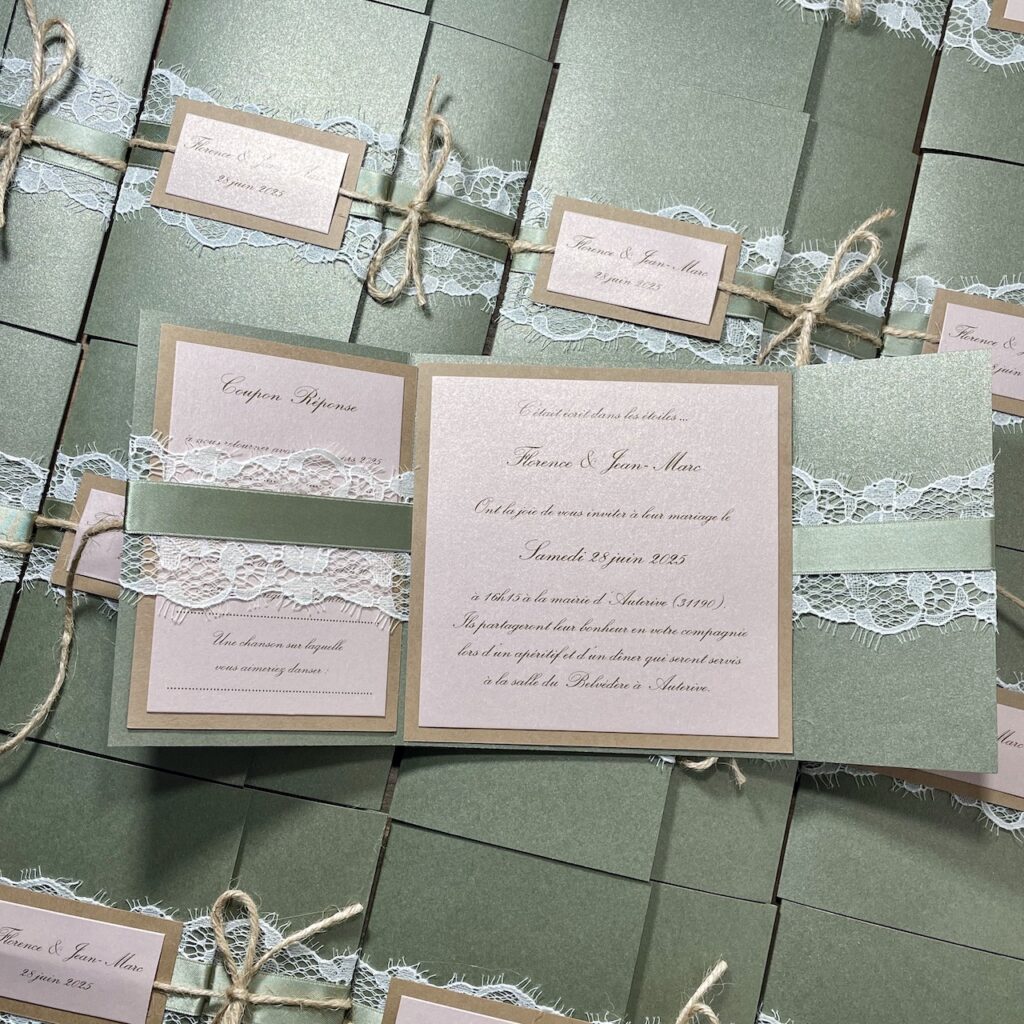 Florence & Jean-Marc
28 juin 2025
Florence & Jean-Marc
28 juin 2025
Florence &
juin 2025
Coupon Réponse
à nous retourner
2025
Une chanson sur laquelle
vous aimeriez danser :
C'était écrit dans les étoiles ...
Florence & Jean-Marc
Ont la joie de vous inviter à leur mariage le
Samedi 28 juin 2025
à 16h15 à la mairie d'Auterive (31190).
Ils partageront leur bonheur en votre compagnie
lors d'un apéritif et d'un dîner qui seront servis
à la salle du Belvédère à Auterive.
Marc
Florence & Jean-Marc
28 juin 2025